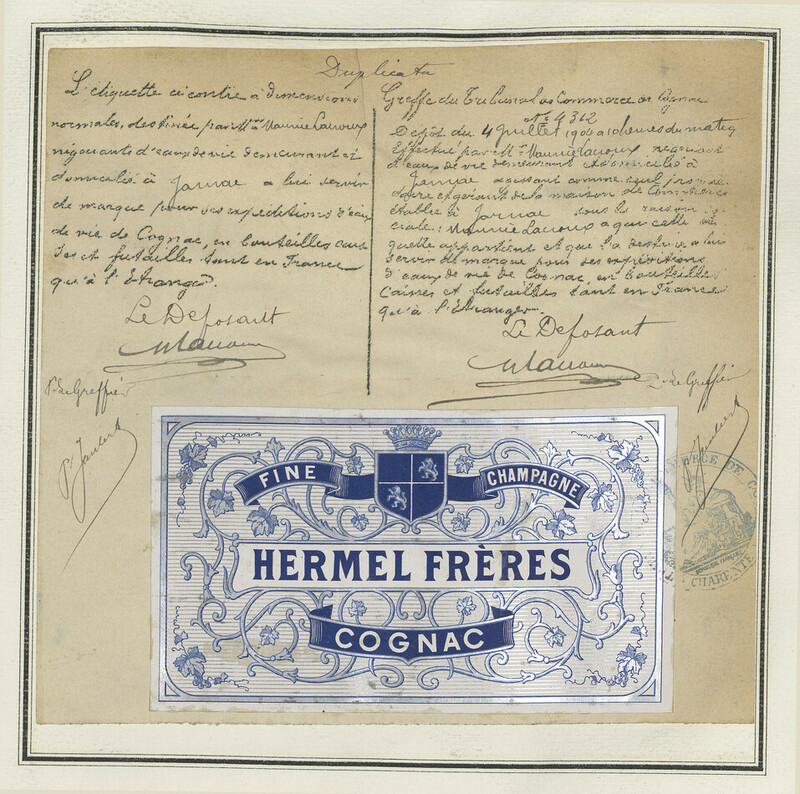 Duplicata
L'étiquette ci contre à dimensions
normales, destinée par Mr Maurice Lacroux
négociants d'eaux de vie demeurant et
domicilié à Jarnac a lui servir
de marque pour ses expéditions d'eaux
de vie de Cognac, en bouteilles cais
ses et futailles tant en France
qu'à l'Etranger.
Le Déposant
Pr Le Greffier
Greffe du Tribunal de Commerce de Cognac
No 4362
Dépôt du 4 Juillet 1904 à 10 heures du matin
Effectué par Mr Maurice Lacroux négociant
d'eaux de vie demeurant et domicilié à
Jarnac agissant comme seul
et gérant de la maison de
établie à Jarnac sous la raison
ciale: Maurice Lacroux à qui cette éti
quette appartient et que la destine à lui
servir de marque pour ses expéditions
d'eaux de vie de Cognac, en bouteilles
Caisses et futailles tant en France
qu'à l'Etranger.
Le Déposant
Le Greffier
FINE CHAMPAGNE
HERMEL FRÈRES
COGNAC
CHARENTE